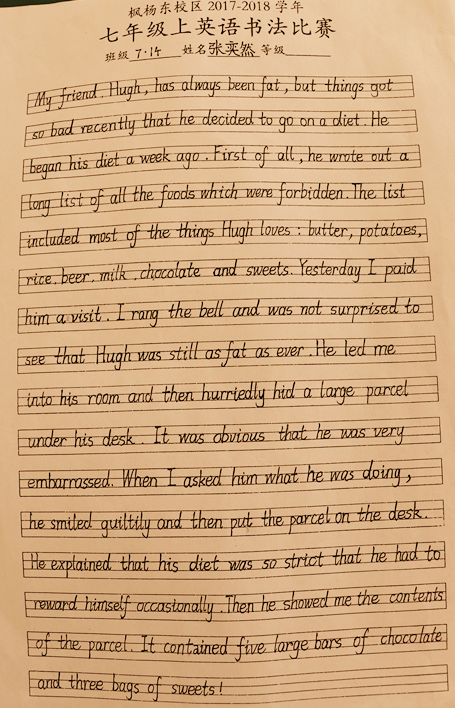 枫杨东校区 2017-2018 学年
七年级上英语书法比赛
班级 7.15 姓名 张奕然 等级
My friend. Hugh, has always been fat, but things got
so bad recently that he decided to go on a diet. He
began his diet a week ago. First of all, he wrote out a
long list of all the foods which were forbidden. The list
included most of the things Hugh loves: butter, potatoes,
rice. beer. milk. chocolate and sweets. Yesterday I paid
him a visit. I rang the bell and was not surprised to
see that Hugh was still as fat as ever. He led me
into his room and then hurriedly hid a large parcel
under his desk. It was obvious that he was very
embarrassed. When I asked him what he was doing,
he smiled guiltily and then put the parcel on the desk.
He explained that his diet was so strict that he had to
reward himself occasionally. Then he showed me the contents
of the parcel. It contained five large bars of chocolate
and three bags of sweets!